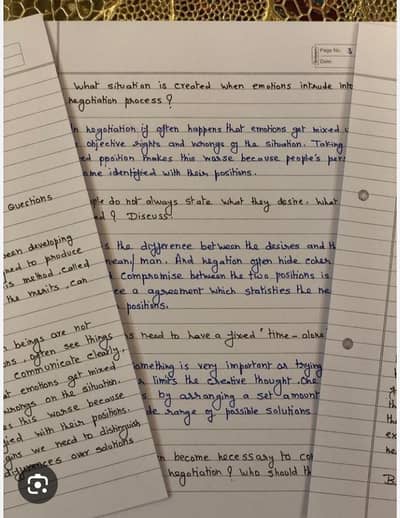 Page No. 3
Date:
What situation is created when emotions intrude into
negotiation process ?
n negotiation if often happens that emotions get mixed
objective rights and wrongs of the situation. Taking
ed pposition makes this worse because people's
ome identified with their positions.
ple do not always state what they desire. What
ed ? Discuss
s the difference between the desires and
mean/ man. And negation often hide
compromise between the two positions is
ce a agreement which statisties the ne
positions.
is need to have a fixed " time - alone
omething is very important as trying
limits the creative thought . One
by arranging a set amount
de range of possible solutions
n become necessary to co
negotiation ? who should th
Questions
been developing
ned to produce
is method , called
the merits , can
beings are not
ons , often see things
communicate clearly,
at emotions get mixed
wrongs on the situation.
es this worse because
fied with their positions.
gins we need to distinguish
differences over solutions
th
th
ex
he
B